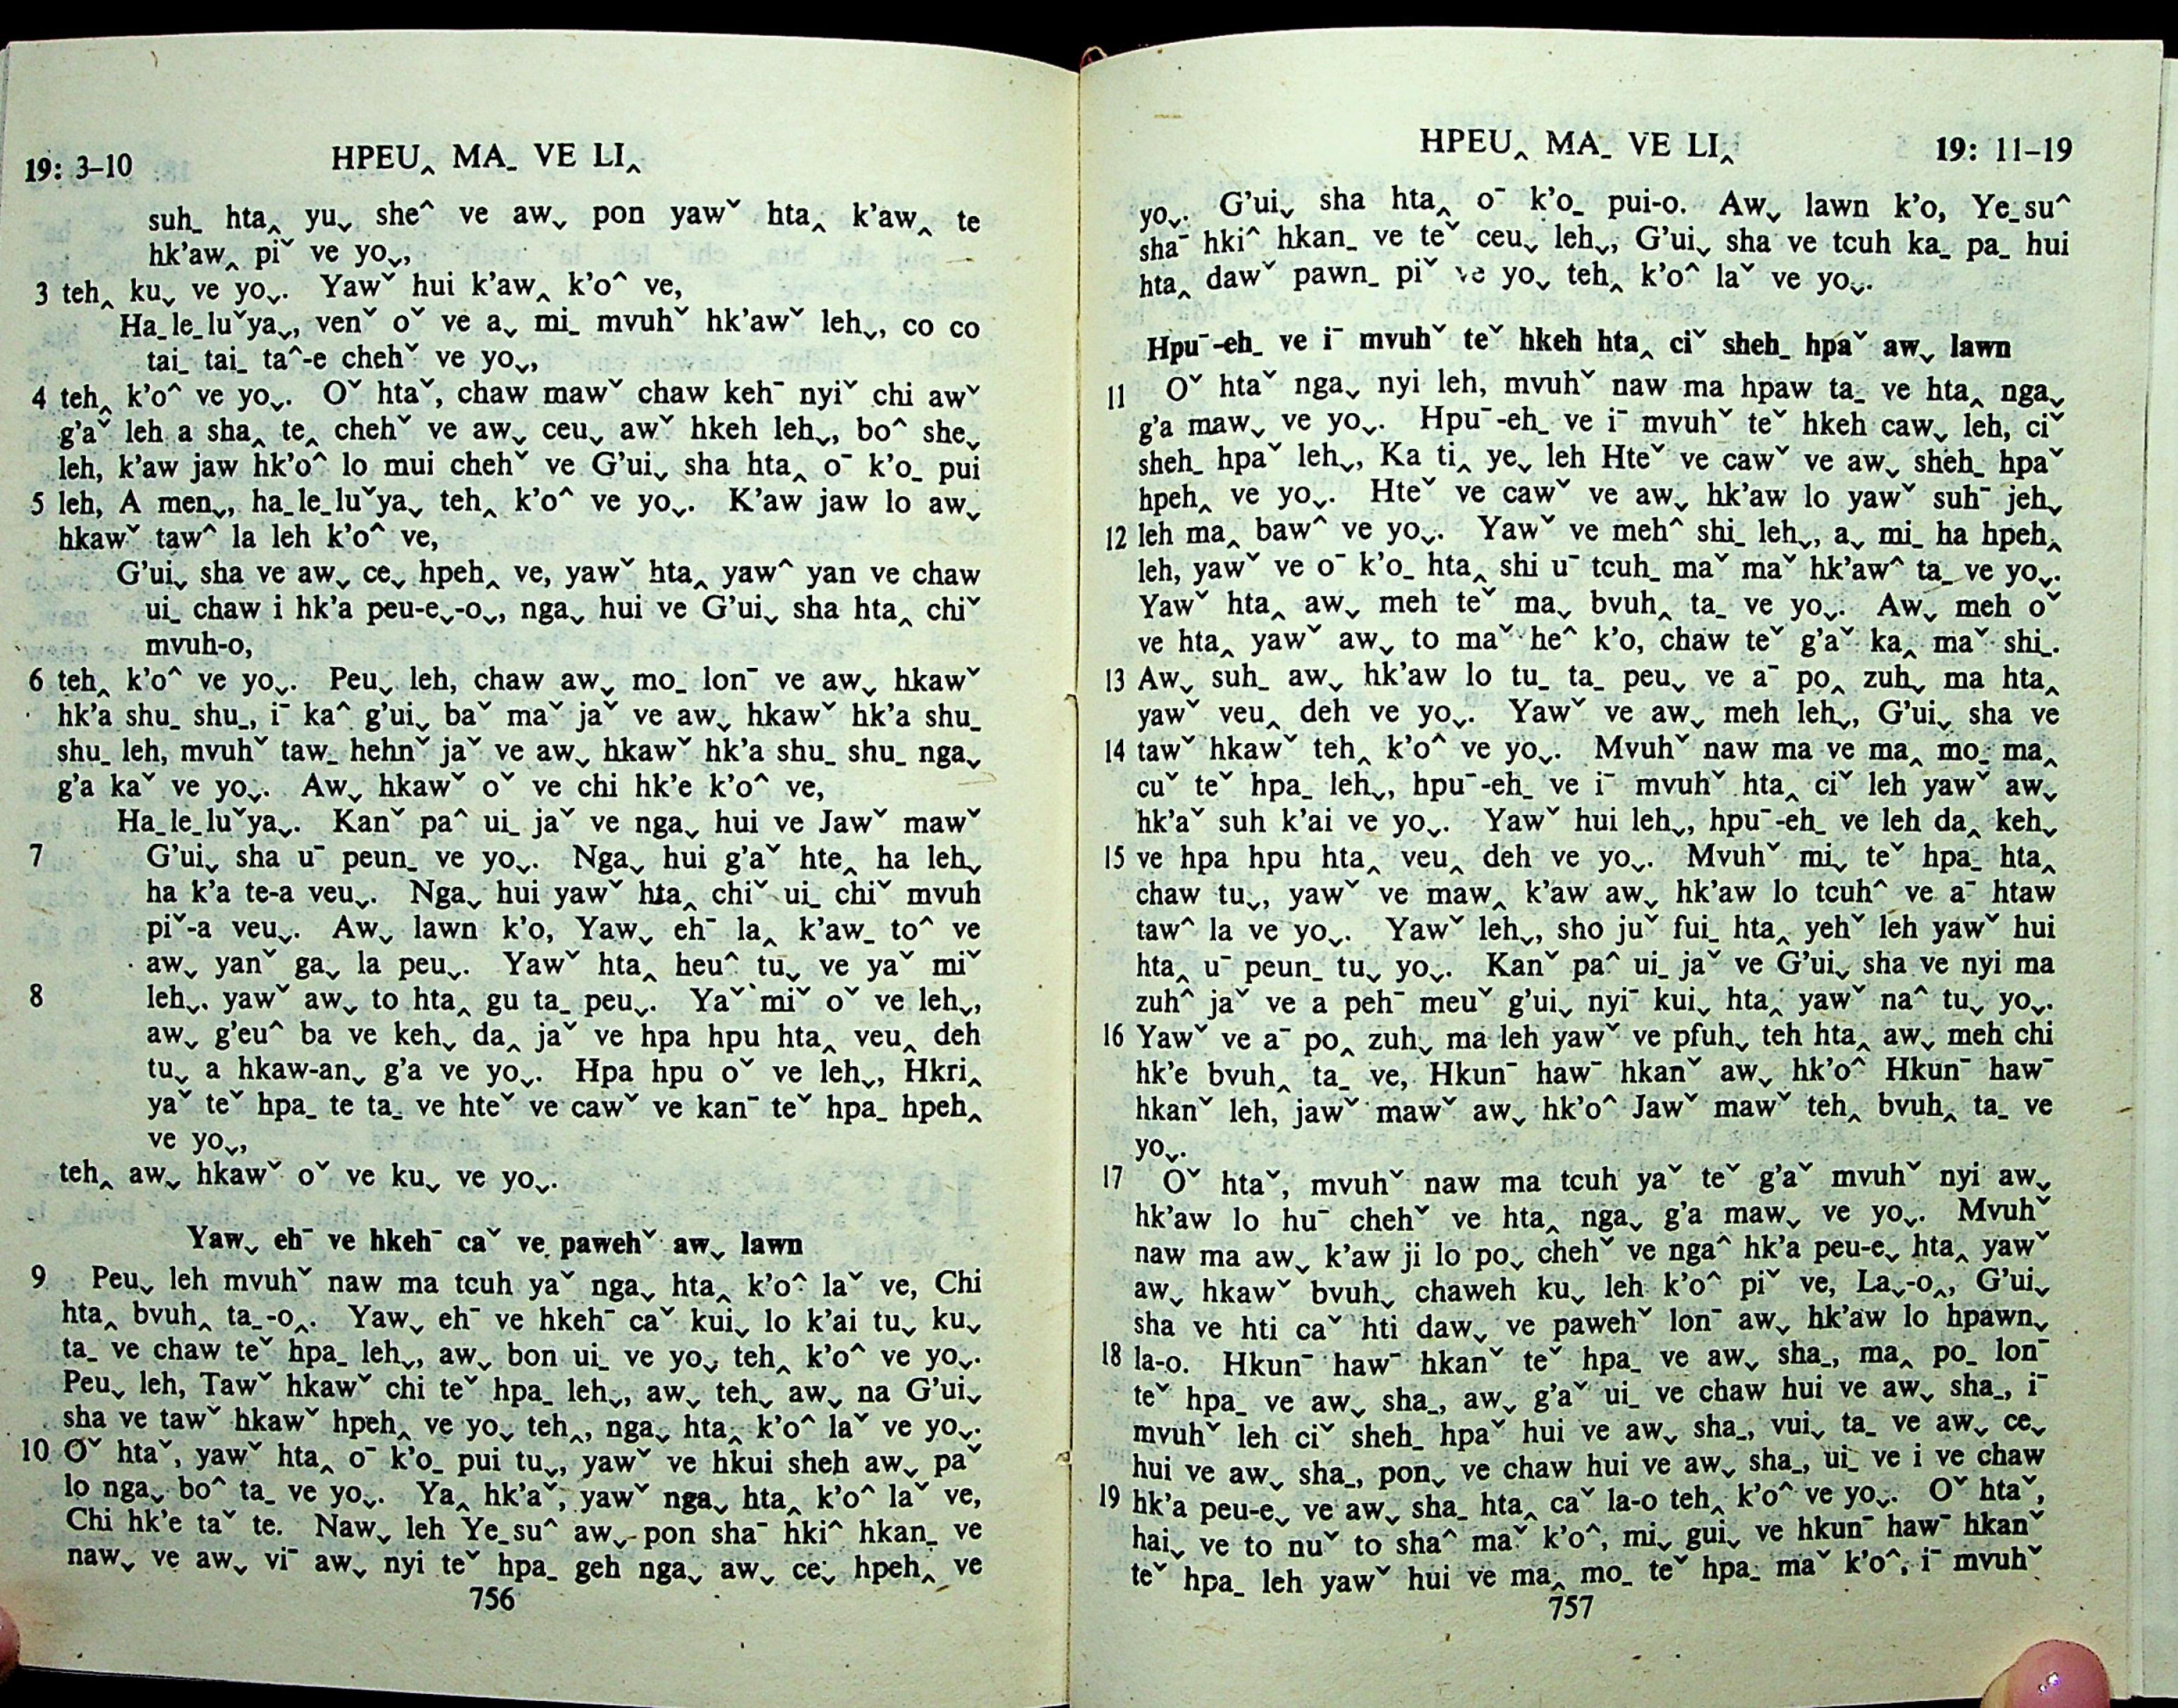 19: 3–10 HPEU‸ MA_ VE LI‸
suh_ hta‸ yu⌄ she^ ve aw⌄ pon yawˇ hta‸ k’aw‸ te
hk’aw‸ piˇ ve yo⌄,
3 teh‸ ku⌄ ve yo⌄. Yawˇ hui k’aw‸ k’o^ ve,
Ha_le_luˇya⌄, venˇ oˇ ve a⌄ mi_ mvuhˇ hk’awˇ leh⌄, co co
tai_ tai_ ta^-e chehˇ ve yo⌄,
4 teh‸ k’o^ ve yo⌄. Oˇ htaˇ, chaw mawˇ chaw keh¯ nyiˇ chi awˇ
g’aˇ leh a sha‸ te‸ chehˇ ve aw⌄ ceu⌄ awˇ hkeh leh⌄, bo^ she⌄
leh, k’aw jaw hk’o^ lo mui chehˇ ve G’ui⌄ sha hta‸ o¯ k’o_ pui
5 leh, A men⌄, ha_le_luˇya⌄ teh‸ k’o^ ve yo⌄. K’aw jaw lo aw⌄
hkawˇ taw^ la leh k’o^ ve,
G’ui⌄ sha ve aw⌄ ce⌄ hpeh‸ ve, yawˇ hta‸ yaw^ yan ve chaw
ui_ chaw i hk’a peu-e⌄-o⌄, nga⌄ hui ve G’ui⌄ sha hta‸ chiˇ
mvuh-o,
6 teh‸ k’o^ ve yo⌄. Peu⌄ leh, chaw aw⌄ mo_ lon¯ ve aw⌄ hkawˇ
hk’a shu_ shu_, i¯ ka^ g’ui⌄ baˇ maˇ jaˇ ve aw⌄ hkawˇ hk’a shu_
shu_ leh, mvuhˇ taw_ hehnˇ jaˇ ve aw⌄ hkawˇ hk’a shu_ shu_ nga⌄
g’a kaˇ ve yo⌄. Aw⌄ hkawˇ oˇ ve chi hk’e k’o^ ve,
Ha_le_luˇya⌄. Kanˇ pa^ ui_ jaˇ ve nga⌄ hui ve Jawˇ mawˇ
7 G’ui⌄ sha u¯ peun_ ve yo⌄. Nga⌄ hui g’aˇ hte‸ ha leh⌄
ha k’a te-a veu⌄. Nga⌄ hui yawˇ hta‸ chiˇ ui_ chiˇ mvuh
piˇ-a veu⌄. Aw⌄ lawn k’o, Yaw⌄ eh¯ la‸ k’aw_ to^ ve
aw⌄ yanˇ ga⌄ la peu⌄. Yawˇ hta‸ heu^ tu⌄ ve yaˇ miˇ
8 leh⌄. yawˇ aw⌄ to hta‸ gu ta_ peu⌄. Yaˇ miˇ oˇ ve leh⌄,
aw⌄ g’eu^ ba ve keh⌄ da‸ jaˇ ve hpa hpu hta‸ veu‸ deh
tu⌄ a hkaw-an⌄ g’a ve yo⌄. Hpa hpu oˇ ve leh⌄, Hkri‸
yaˇ teˇ hpa_ te ta_ ve hteˇ ve cawˇ ve kan¯ teˇ hpa_ hpeh‸
ve yo⌄,
teh‸ aw⌄ hkawˇ oˇ ve ku⌄ ve yo⌄.
Yaw⌄ eh¯ ve hkeh¯ caˇ ve pawehˇ aw⌄ lawn
9 Peu⌄ leh mvuhˇ naw ma tcuh yaˇ nga⌄ hta‸ k’o^ laˇ ve, Chi
hta‸ bvuh‸ ta_-o‸. Yaw⌄ eh¯ ve hkeh¯ caˇ kui⌄ lo k’ai tu⌄ ku⌄
ta_ ve chaw teˇ hpa_ leh⌄, aw⌄ bon ui_ ve yo⌄ teh‸ k’o^ ve yo⌄.
Peu⌄ leh, Tawˇ hkawˇ chi teˇ hpa_ leh⌄, aw⌄ teh⌄ aw⌄ na G’ui⌄
sha ve tawˇ hkawˇ hpeh‸ ve yo⌄ teh‸, nga⌄ hta‸ k’o^ laˇ ve yo⌄.
10 Oˇ htaˇ, yawˇ hta‸ o¯ k’o_ pui tu⌄, yawˇ ve hkui sheh aw⌄ paˇ
lo nga⌄ bo^ ta_ ve yo⌄. Ya‸ hk’aˇ, yawˇ nga⌄ hta‸ k’o^ laˇ ve,
Chi hk’e taˇ te. Naw⌄ leh Ye_su^ aw⌄ pon sha¯ hki^ hkan_ ve
naw⌄ ve aw⌄ vi¯ aw⌄ nyi teˇ hpa_ geh nga⌄ aw⌄ ce⌄ hpeh‸ ve
756
HPEU‸ MA_ VE LI‸ 19: 11–19
yo⌄. G’ui⌄ sha hta‸ o¯ k’o_ pui-o. Aw⌄ lawn k’o, Ye_su^
sha¯ hki^ hkan_ ve teˇ ceu⌄ leh⌄, G’ui⌄ sha ve tcuh ka_ pa_ hui
hta‸ dawˇ pawn_ piˇ ve yo⌄ teh‸ k’o^ laˇ ve yo⌄.
Hpu¯-eh_ ve i¯ mvuhˇ teˇ hkeh hta‸ ciˇ sheh_ hpaˇ aw⌄ lawn
11 Oˇ htaˇ nga⌄ nyi leh, mvuhˇ naw ma hpaw ta_ ve hta‸ nga⌄
g’a maw⌄ ve yo⌄. Hpu¯-eh_ ve i¯ mvuhˇ teˇ hkeh caw⌄ leh, ciˇ
sheh_ hpaˇ leh⌄, Ka ti‸ ye⌄ leh Hteˇ ve cawˇ ve aw⌄ sheh_ hpaˇ
hpeh‸ ve yo⌄. Hteˇ ve cawˇ ve aw⌄ hk’aw lo yawˇ suh¯ jeh⌄
12 leh ma‸ baw^ ve yo⌄. Yawˇ ve meh^ shi_ leh⌄, a⌄ mi_ ha hpeh‸
leh, yawˇ ve o¯ k’o_ hta‸ shi u¯ tcuh_ maˇ maˇ hk’aw^ ta_ ve yo⌄.
Yawˇ hta‸ aw⌄ meh teˇ ma⌄ bvuh‸ ta_ ve yo⌄. Aw⌄ meh oˇ
ve hta‸ yawˇ aw⌄ to maˇ he^ k’o, chaw teˇ g’aˇ ka‸ maˇ shi_.
13 Aw⌄ suh_ aw⌄ hk’aw lo tu_ ta_ peu⌄ ve a¯ po‸ zuh⌄ ma hta‸
yawˇ veu‸ deh ve yo⌄. Yawˇ ve aw⌄ meh leh⌄, G’ui⌄ sha ve
14 tawˇ hkawˇ teh‸ k’o^ ve yo⌄. Mvuhˇ naw ma ve ma‸ mo_ ma‸
cuˇ teˇ hpa_ leh⌄, hpu¯-eh_ ve i¯ mvuhˇ hta‸ ciˇ leh yawˇ aw⌄
hk’aˇ suh k’ai ve yo⌄. Yawˇ hui leh⌄, hpu¯-eh_ ve leh da‸ keh⌄
15 ve hpa hpu hta‸ veu‸ deh ve yo⌄. Mvuhˇ mi⌄ teˇ hpa_ hta‸
chaw tu⌄, yawˇ ve maw‸ k’aw aw⌄ hk’aw lo tcuh^ ve a¯ htaw
taw^ la ve yo⌄. Yawˇ leh⌄, sho juˇ fui_ hta‸ yehˇ leh yawˇ hui
hta‸ u¯ peun_ tu⌄ yo⌄. Kanˇ pa^ ui_ jaˇ ve G’ui⌄ sha ve nyi ma
zuh^ jaˇ ve a peh¯ meuˇ g’ui⌄ nyi¯ kui⌄ hta‸ yawˇ na^ tu⌄ yo⌄.
16 Yawˇ ve a¯ po‸ zuh⌄ ma leh yawˇ ve pfuh⌄ teh hta‸ aw⌄ meh chi
hk’e bvuh‸ ta_ ve, Hkun¯ haw¯ hkanˇ aw⌄ hk’o^ Hkun¯ haw¯
hkanˇ leh, jawˇ mawˇ aw⌄ hk’o^ Jawˇ mawˇ teh‸ bvuh‸ ta_ ve
yo⌄.
17 Oˇ htaˇ, mvuhˇ naw ma tcuh yaˇ teˇ g’aˇ mvuhˇ nyi aw⌄
hk’aw lo hu¯ chehˇ ve hta‸ nga⌄ g’a maw⌄ ve yo⌄. Mvuhˇ
naw ma aw⌄ k’aw ji lo po⌄ chehˇ ve nga^ hk’a peu-e⌄ hta‸ yawˇ
aw⌄ hkawˇ bvuh⌄ chaweh ku⌄ leh k’o^ piˇ ve, La⌄-o‸, G’ui⌄
sha ve hti caˇ hti daw⌄ ve pawehˇ lon¯ aw⌄ hk’aw lo hpawn⌄
18 la-o. Hkun¯ haw¯ hkanˇ teˇ hpa_ ve aw⌄ sha_, ma‸ po_ lon¯
teˇ hpa_ ve aw⌄ sha_, aw⌄ g’aˇ ui_ ve chaw hui ve aw⌄ sha_, i¯
mvuhˇ leh ciˇ sheh_ hpaˇ hui ve aw⌄ sha_, vui⌄ ta_ ve aw⌄ ce⌄
hui ve aw⌄ sha_, pon⌄ ve chaw hui ve aw⌄ sha_, ui_ ve i ve chaw
19 hk’a peu-e⌄ ve aw⌄ sha_ hta‸ caˇ la-o teh‸ k’o^ ve yo⌄. Oˇ htaˇ,
hai⌄ ve to nuˇ to sha^ maˇ k’o^, mi⌄ gui⌄ ve hkun¯ haw¯ hkanˇ
teˇ hpa_ leh yawˇ hui ve ma‸ mo_ teˇ hpa_ maˇ k’o^, i¯ mvuhˇ
757